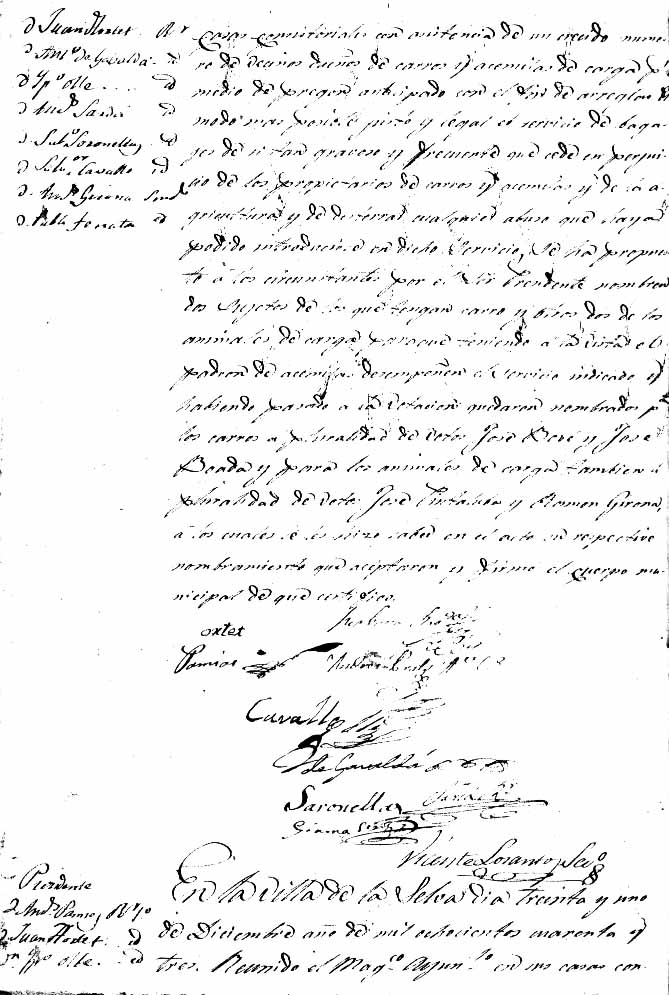 D Juan Hortet R.r
D Ant.o de Gavaldá id
D Jp.o olle .... id
D And.s Sardá id
D. Seb.n Soronellas id
D Salv.or Cavallé id
D. And.s Girona Sind.
D. Pablo id
Casas consistoriales con asistencia de un crecido nume-
ro de vecinos dueños de carros y acemilas de carga p.r
medio de pregon anticipado con el fin de arreglar del
modo mas posible justo y legal el servicio de baga-
jes de si tan gravoso y frecuente que cede en perjui-
cio de los propietarios de carros y acemilas y de la a-
gricultura y de desterrar cualquier abuso que haya
podido introducirse en dicho servicio, Se ha propues-
to á los circunstantes por el Sor Presidente nombren
dos Sujetos de los que tengan carro y otros dos de los
animales de carga, paraque teniendo á la vista el
padron de acemilas desempeñen el servicio indicado y
habiendo pasado a la votacion quedaron nombrados p.a
los carros a pluralidad de votos José y José
Boada y para los animales de carga tambien á
pluralidad de votos José y Ramon Girona,
á los cuales se les hizo saber en el acto su respective
nombramiento que aceptaron y firmo el cuerpo mu-
nicipal de que certifico.
ortet
Pamies
Cavalle
de Gavaldá
Soronellas Sardá
Girona Sind.
Vicente Soranto Scio
Presidente
D And.s Pamies R.r 1o
D Juan Hortet .. id
D Jp.o olle. .. id
En la Villa de la Selva dia treinta y uno
de Diciembre año de mil ochocientos cuarenta y
tres. Reunido el Mag.co Ayun.to en sus casas con-